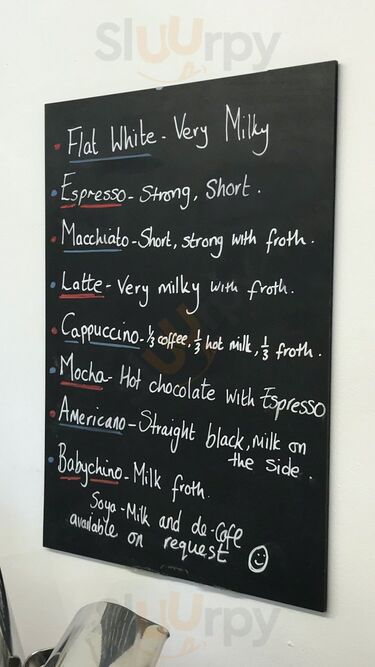 Sluurpy
Flat White - Very Milky
Espresso - Strong, Short.
Macchiato - Short, strong with froth.
Latte - Very milky with froth.
Cappuccino - ⅓ coffee, ⅓ hot milk, ⅓ froth.
Mocha - Hot chocolate with Espresso
Americano - Straight black, Milk on
the side.
Babychino - Milk froth.
Soya-Milk and de-Cafe
available on request
Sluurpy